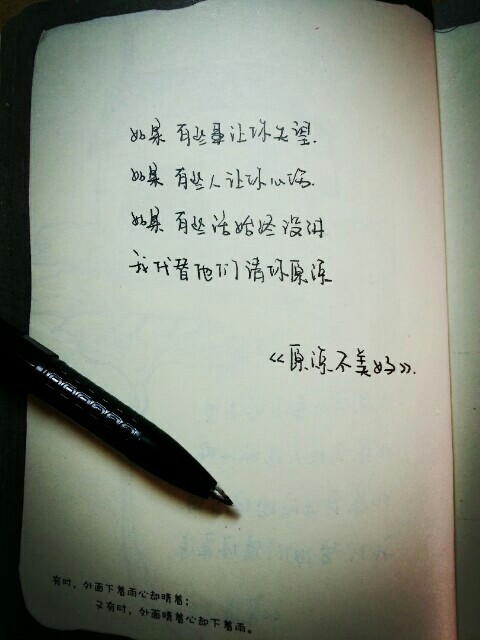 如果 有些事让你失望.
如果 有些人让你心瑞.
如果 有些话始终没讲
我代替他们请你原谅
《原谅不美好》.
有时，外面下着雨心却晴着；
又有时，外面晴着心却下着雨。